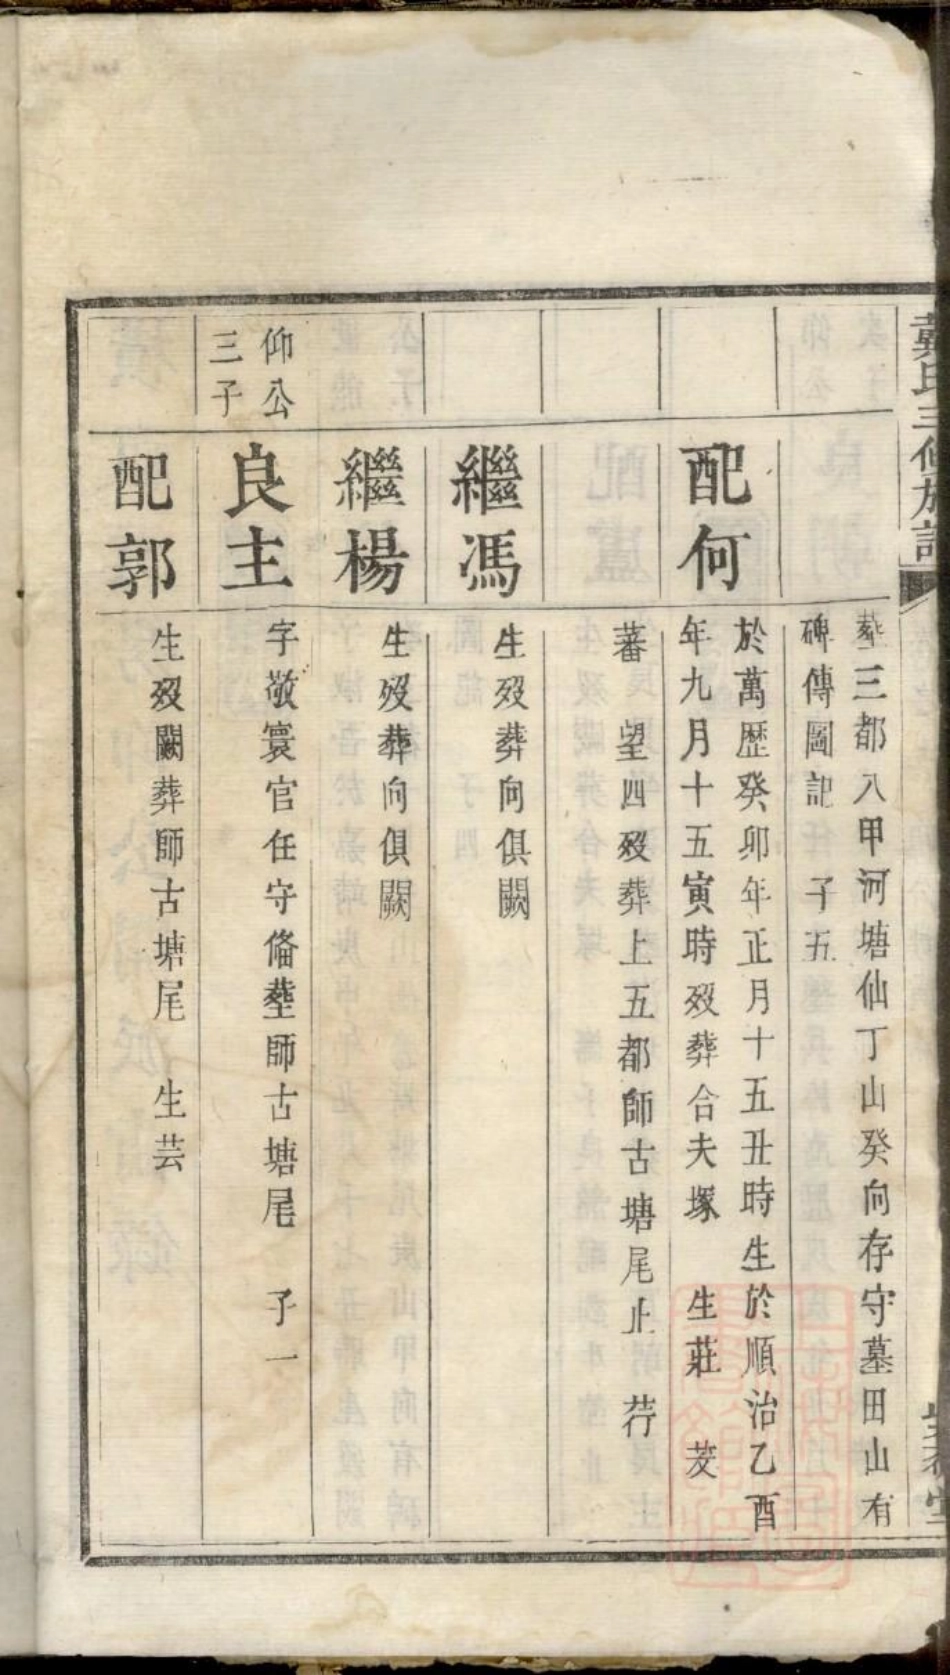 戴氏三修族譜
塟三都入甲河塘仙丁山癸向存守墓田山有
碑傳圖記 子五
配何
於萬歷癸卯年正月十五丑時生於順治乙酉
年九月十五寅時歿葬合夫塚 生莊 茭
蕃 望四歿葬上五都師古塘尾止 荇
繼馮
生歿葬向俱闕
繼楊
生歿葬向俱闕
仰公
三子
良主
字敬寰官任守俻塟師古塘尾 子一
配郭
生歿闕葬師古塘尾 生芸